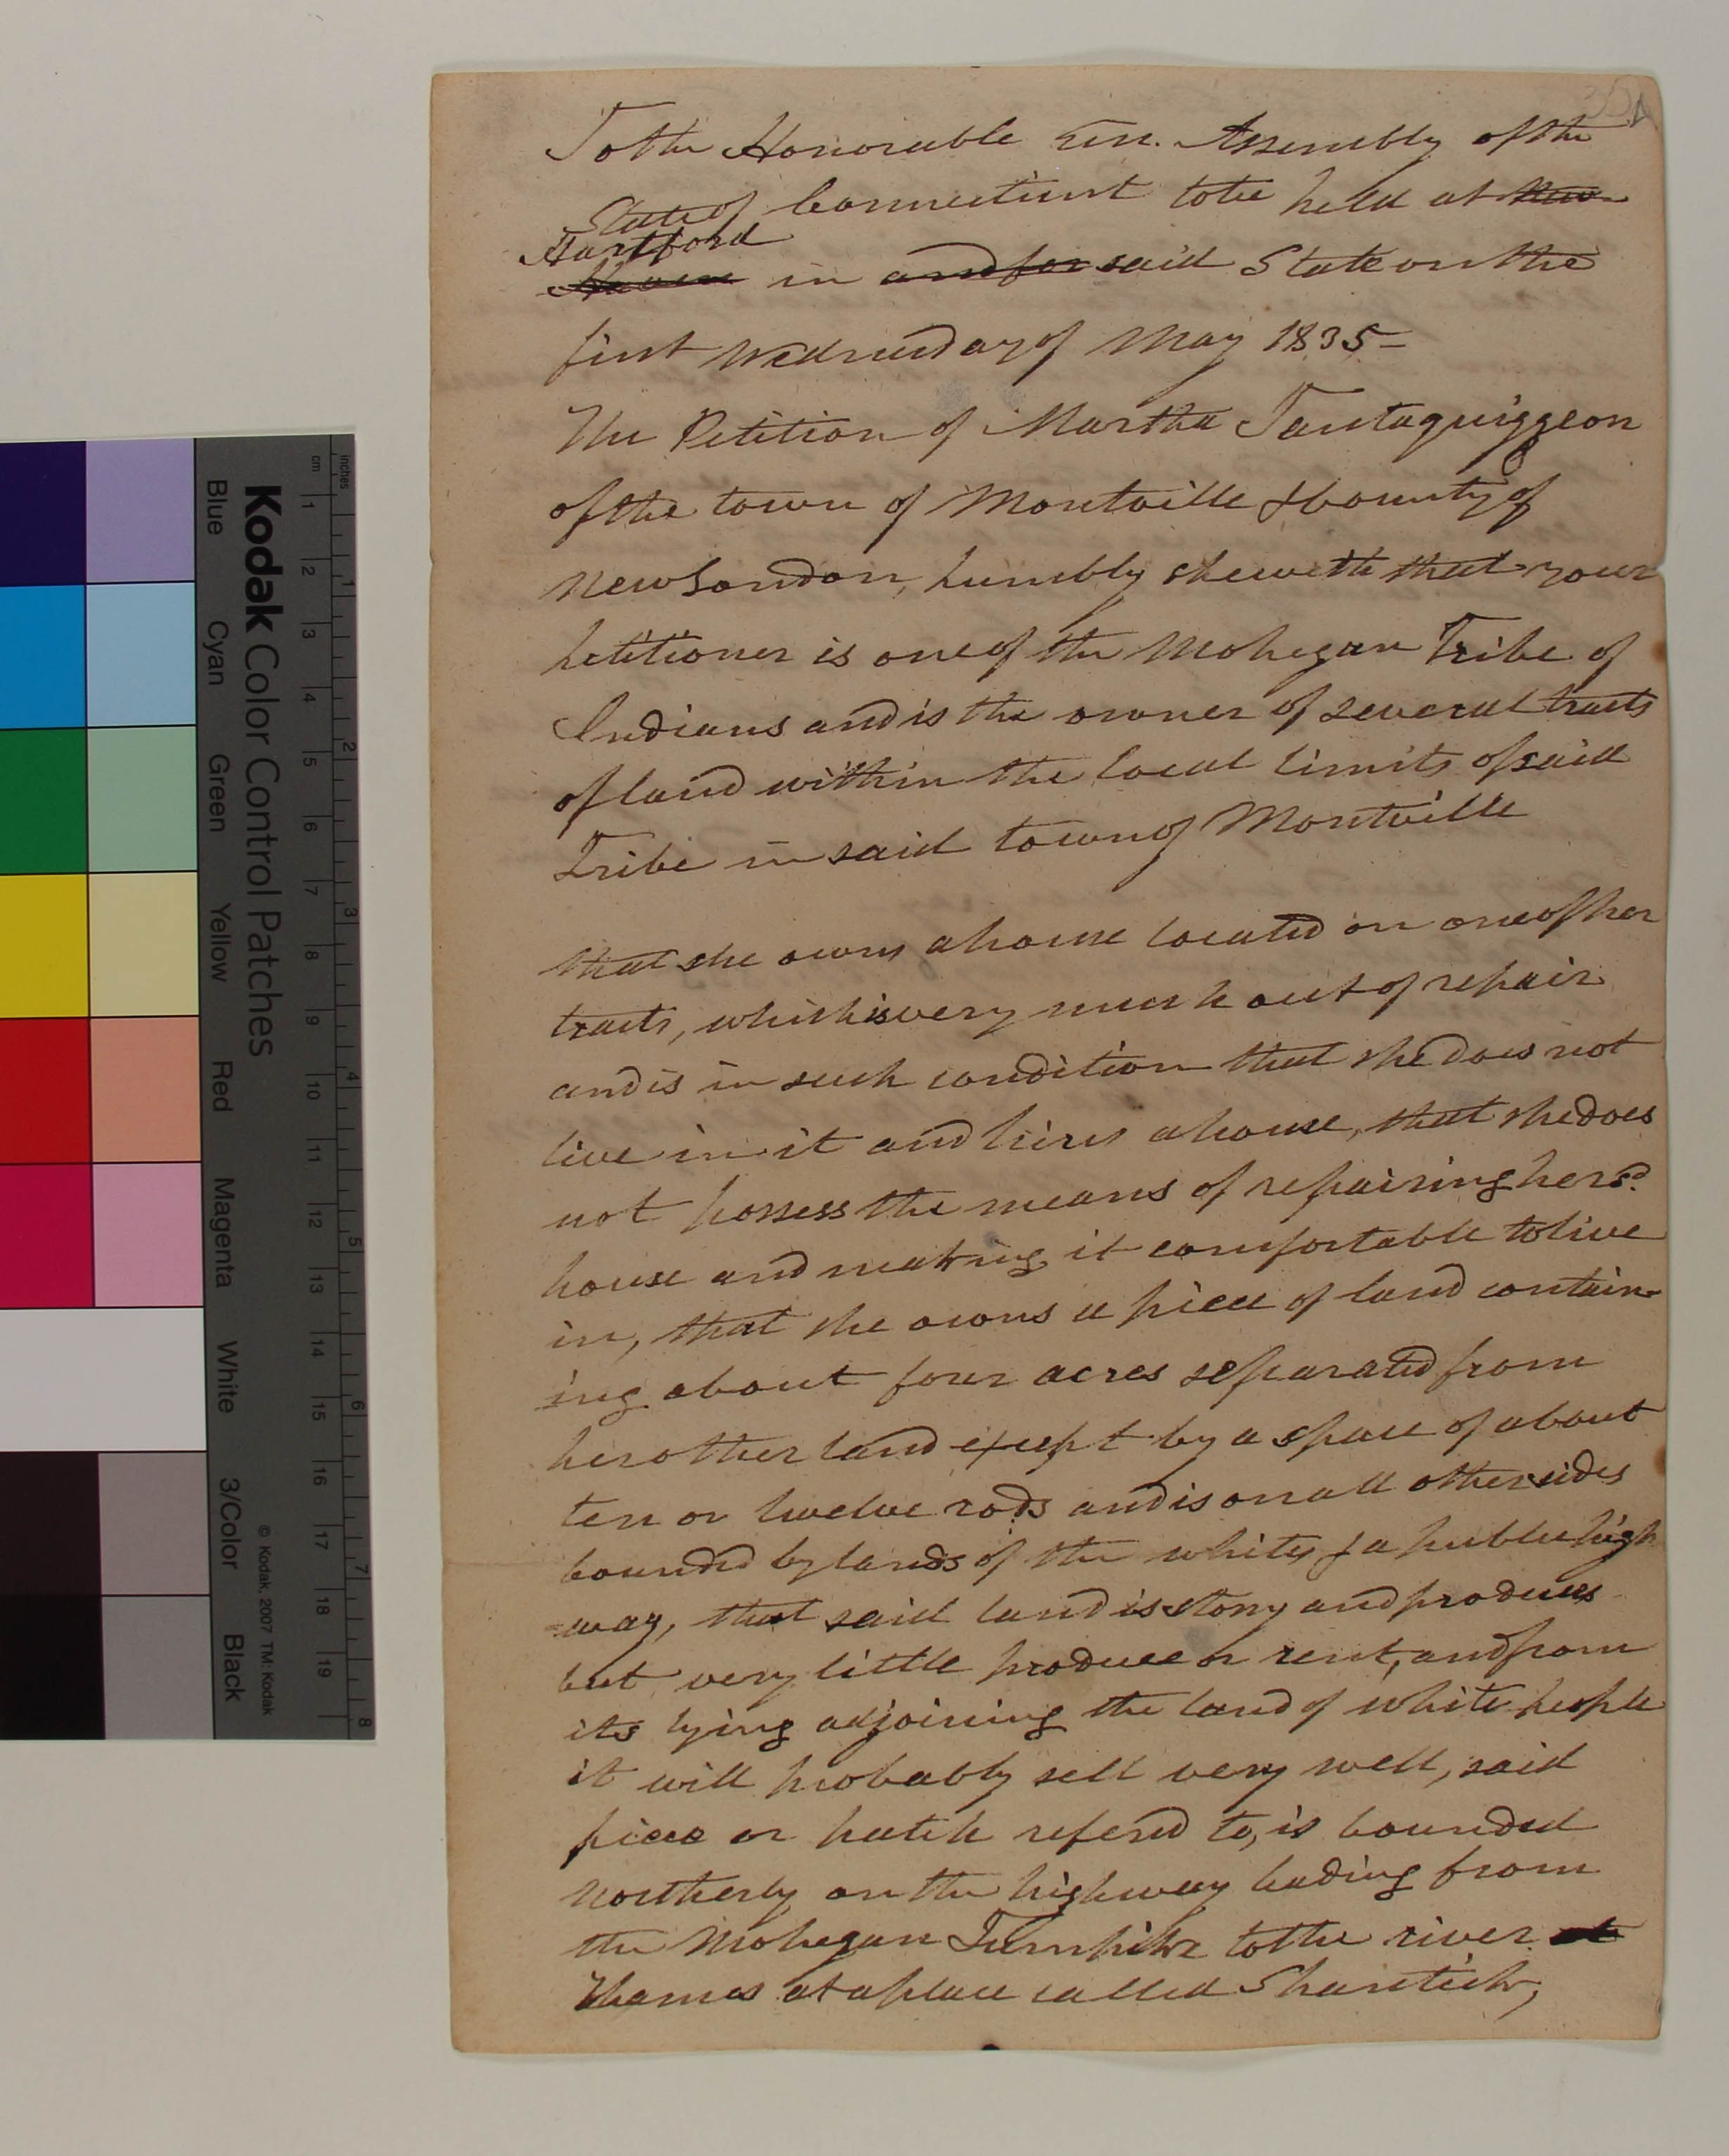 To the Honorable Gen. Assembly of the
State of Connecticut to be held at New
Hartford
Haven in and for said State on the
first Wednesday of May 1835 -
The Petition of Martha Tantaquiggeon
of the town of Montville & County of
New London, humbly sheweth that your
petitioner is one of the Mohegan Tribe of
Indians and is the owner of several tracts
of land within the local limits of said
Tribe in said town of Montville
that she owns a house located on one of her
tracts, which is very much out of repair
and is in such condition that she does not
live in it and hires a house, that she does
not possess the means of repairing her sd.
house and making it comfortable to live
in, that she owns a piece of land contain-
ing about four acres separated from
her other land except by a space of about
ten or twelve rods and is on all other sides
bounded by lands of the whites & a public high
=way, that said land is stony and produces
but very little produce or rent, and from
its lying adjoining the land of white people
it will probably sell very well, said
piece or patch refered to, is bounded
Northerly on the highway leading from
the Mohegan Turnpike to the river
Thames at a place called Shantick,
Kodak Color Control Patches
Blue Cyan Green Yellow Red Magenta White 3/Color Black
© Kodak, 2007 TM: Kodak
inches 1 2 3 4 5 6 7 8
cm 1 2 3 4 5 6 7 8 9 10 11 12 13 14 15 16 17 18 19